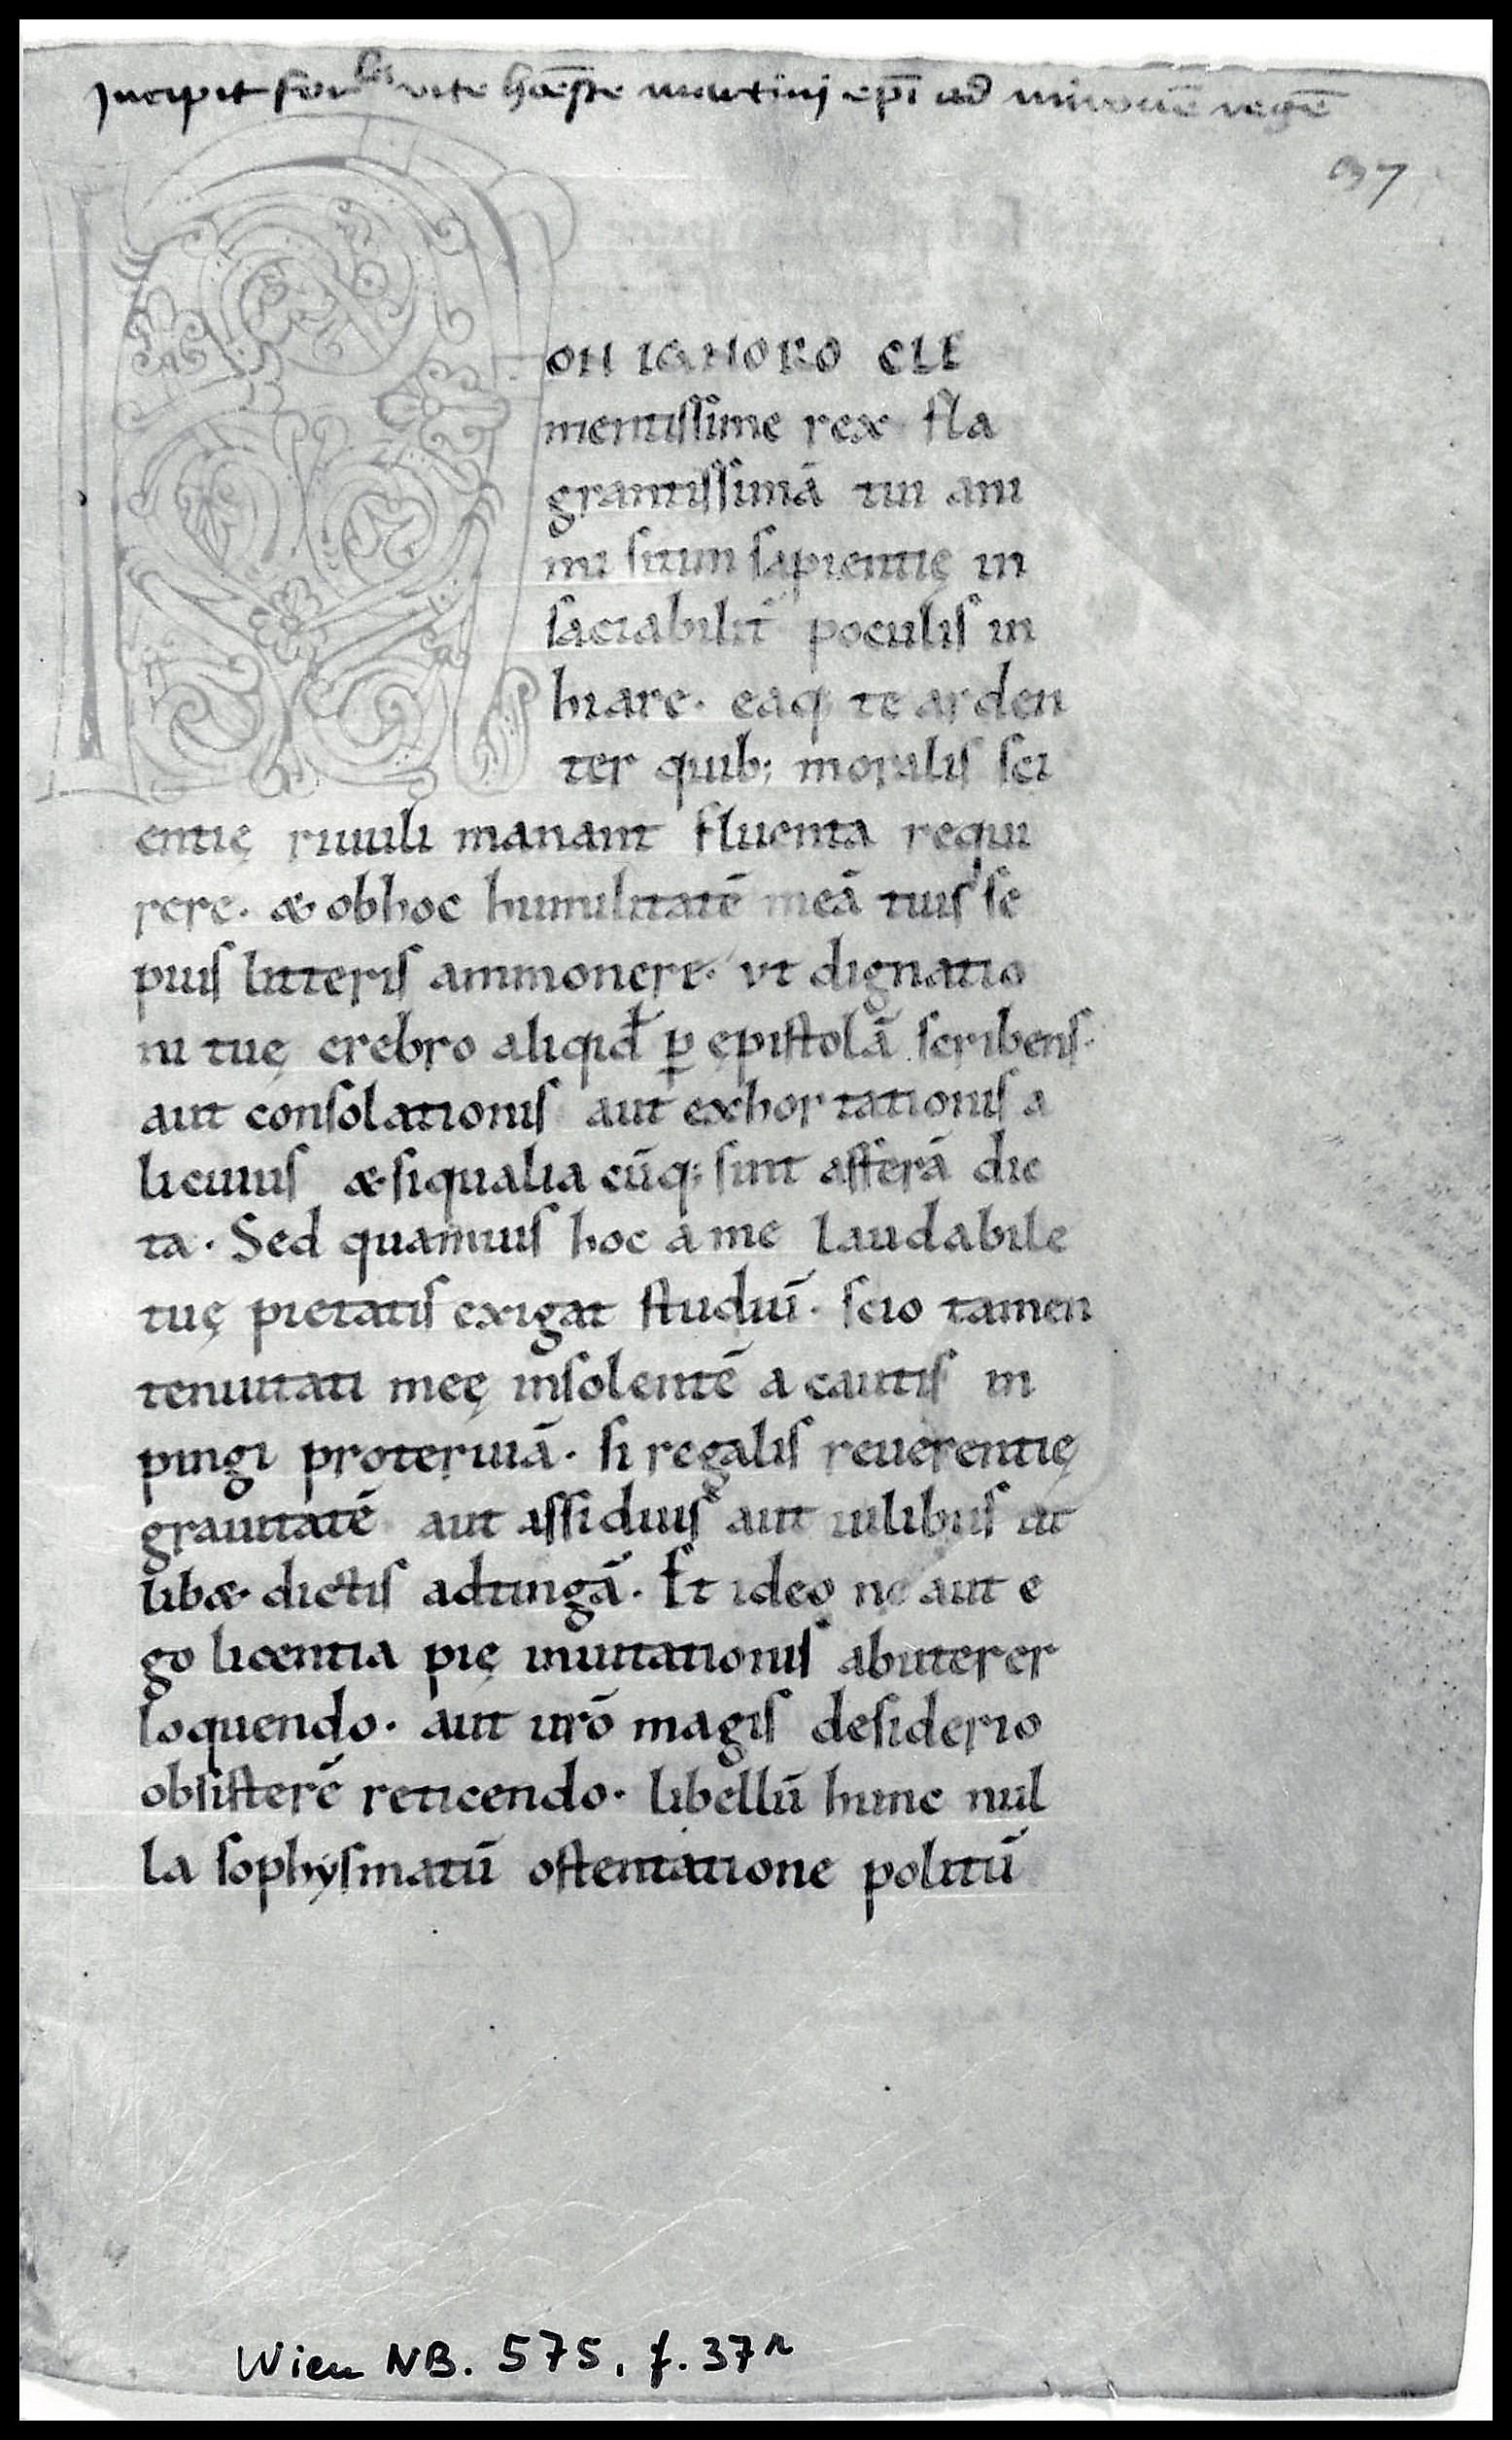 Incipit for les vite hōeste martinj ep̄i ad mironē regē
37
NON IGNORO CLE
mentissime rex fla
grantissimā tui ani
mi sitim sapientię in
saciabilit̄ poculis in
hiare. eaq; te arden
ter quib; moralis sci
entię riuuli manant fluenta requi
rere. & ob hoc humilitatē meā tuis se
pius litteris ammonere. vt dignatio
ni tuę crebro aliqid̄ ꝑ ępistolā scribens.
aut consolationis aut exhortationis a
licuius & si qualia cūq; sint afferā dic
ta. Sed quamuis hoc a me laudabile
tuę pietatis exigat studiū. scio tamen
tenuitati meę insolentē a cautis in
pingi proteruiā. si regalis reuerentię
grauitatē aut assiduis aut uilibus ut
lib& dictis adtingā. Et ideo ne aut e
go licentia pię inuitationis abuterer
loquendo. aut uro̅ magis desiderio
obsisterē reticendo. libellū hunc nul
la sophysmatū ostentatione politū
Wien NB. 575, f. 37r